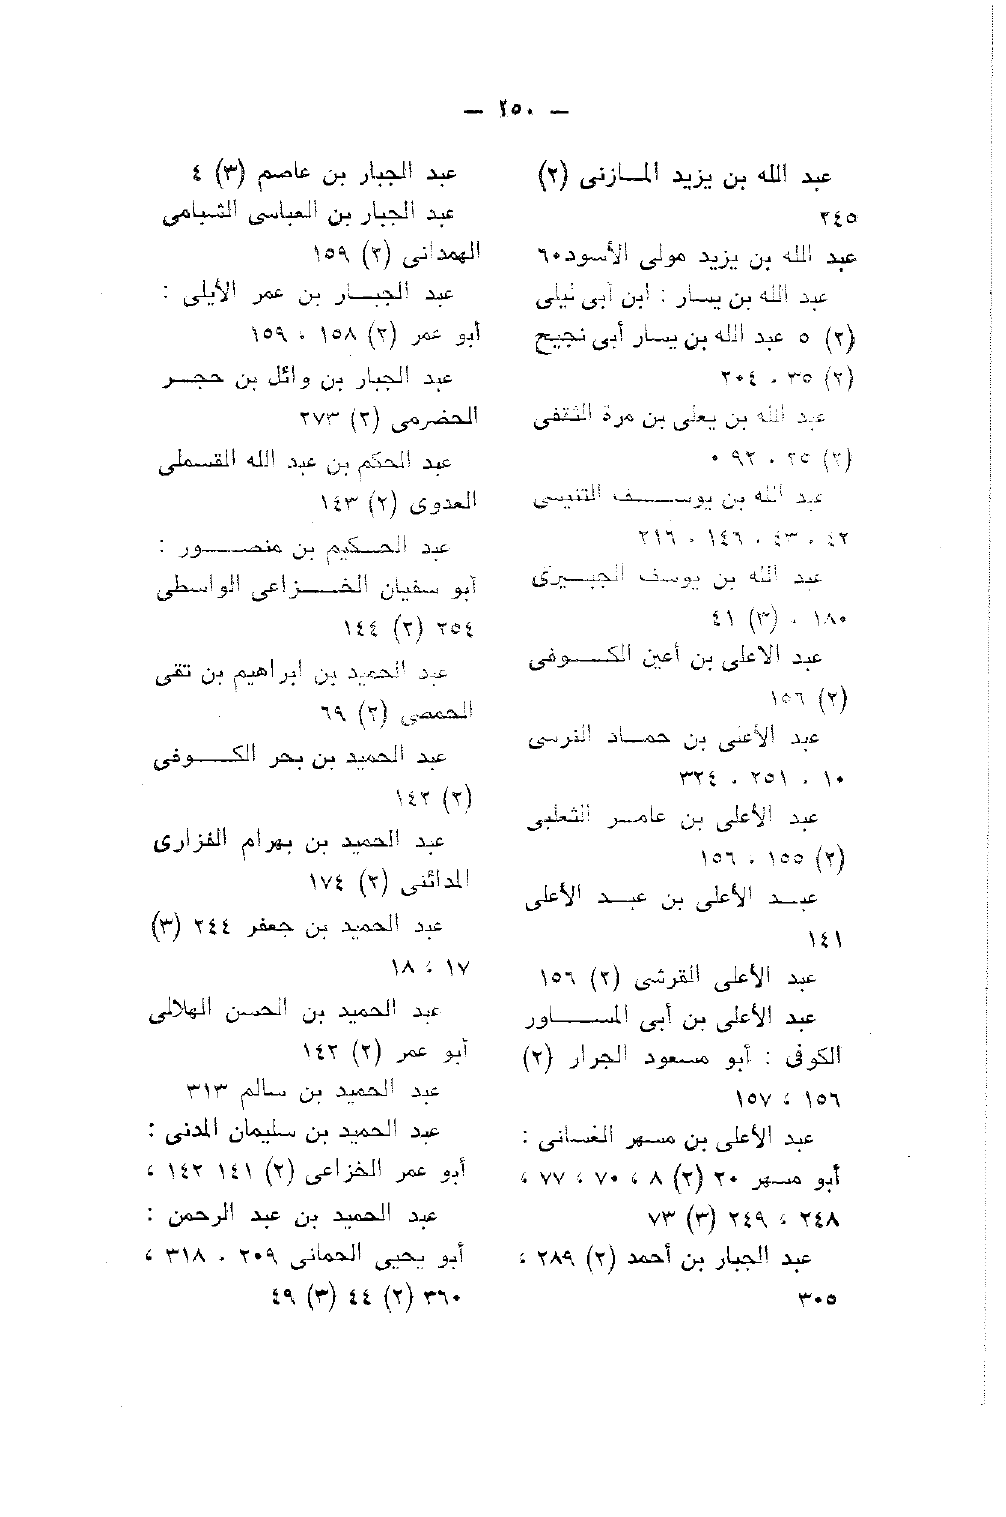 — ٢٥٠ —
عبد الله بن يزيد المازنى (٢)
٢٤٥
عبد الله بن يزيد مولى الأسود ٦٠
عبد الله بن يسار : ابن أبى ليلى
(٢) ٥ عبد الله بن يسار أبى نجيح
(٢) ٣٥ ، ٢٠٤
عبد الله بن يعلى بن مرة الثقفى
(٢) ٢٥ ، ٩٢ ٠
عبد الله بن يوسف التنيسى
٤٢ ، ٤٣ ، ١٤٦ ، ٢١٦
عبد الله بن يوسف الجبيرى
١٨٠ ، (٣) ٤١
عبد الاعلى بن أعين الكوفى
(٢) ١٥٦
عبد الأعلى بن حماد النرسى
١٠ ، ٢٥١ ، ٣٢٤
عبد الأعلى بن عامر الثعلبى
(٢) ١٥٥ ، ١٥٦
عبد الأعلى بن عبد الأعلى
١٤١
عبد الأعلى القرشى (٢) ١٥٦
عبد الأعلى بن أبى المساور
الكوفى : أبو مسعود الجرار (٢)
١٥٦ ، ١٥٧
عبد الأعلى بن مسهر الغسانى :
أبو مسهر ٢٠ (٢) ٨ ، ٧٠ ، ٧٧ ،
٢٤٨ ، ٢٤٩ (٣) ٧٣
عبد الجبار بن أحمد (٢) ٢٨٩ ،
٣٠٥
عبد الجبار بن عاصم (٣) ٤
عبد الجبار بن العباس الشبامى
الهمدانى (٢) ١٥٩
عبد الجبار بن عمر الأيلى :
أبو عمر (٢) ١٥٨ ، ١٥٩
عبد الجبار بن وائل بن حجر
الحضرمى (٢) ٢٧٣
عبد الحكم بن عبد الله القسملى
العدوى (٢) ١٤٣
عبد الحكيم بن منصور :
أبو سفيان الخزاعى الواسطى
٢٥٤ (٢) ١٤٤
عبد الحميد بن ابراهيم بن تقى
الحمصى (٢) ٦٩
عبد الحميد بن بحر الكوفى
(٢) ١٤٢
عبد الحميد بن بهرام الفزارى
المدائنى (٢) ١٧٤
عبد الحميد بن جعفر ٢٤٤ (٣)
١٧ ، ١٨
عبد الحميد بن الحسن الهلالى
أبو عمر (٢) ١٤٢
عبد الحميد بن سالم ٣١٣
عبد الحميد بن سليمان المدنى :
أبو عمر الخزاعى (٢) ١٤١ ١٤٢ ،
عبد الحميد بن عبد الرحمن :
أبو يحيى الحمانى ٢٠٩ ، ٣١٨ ،
٣٦٠ (٢) ٤٤ (٣) ٤٩